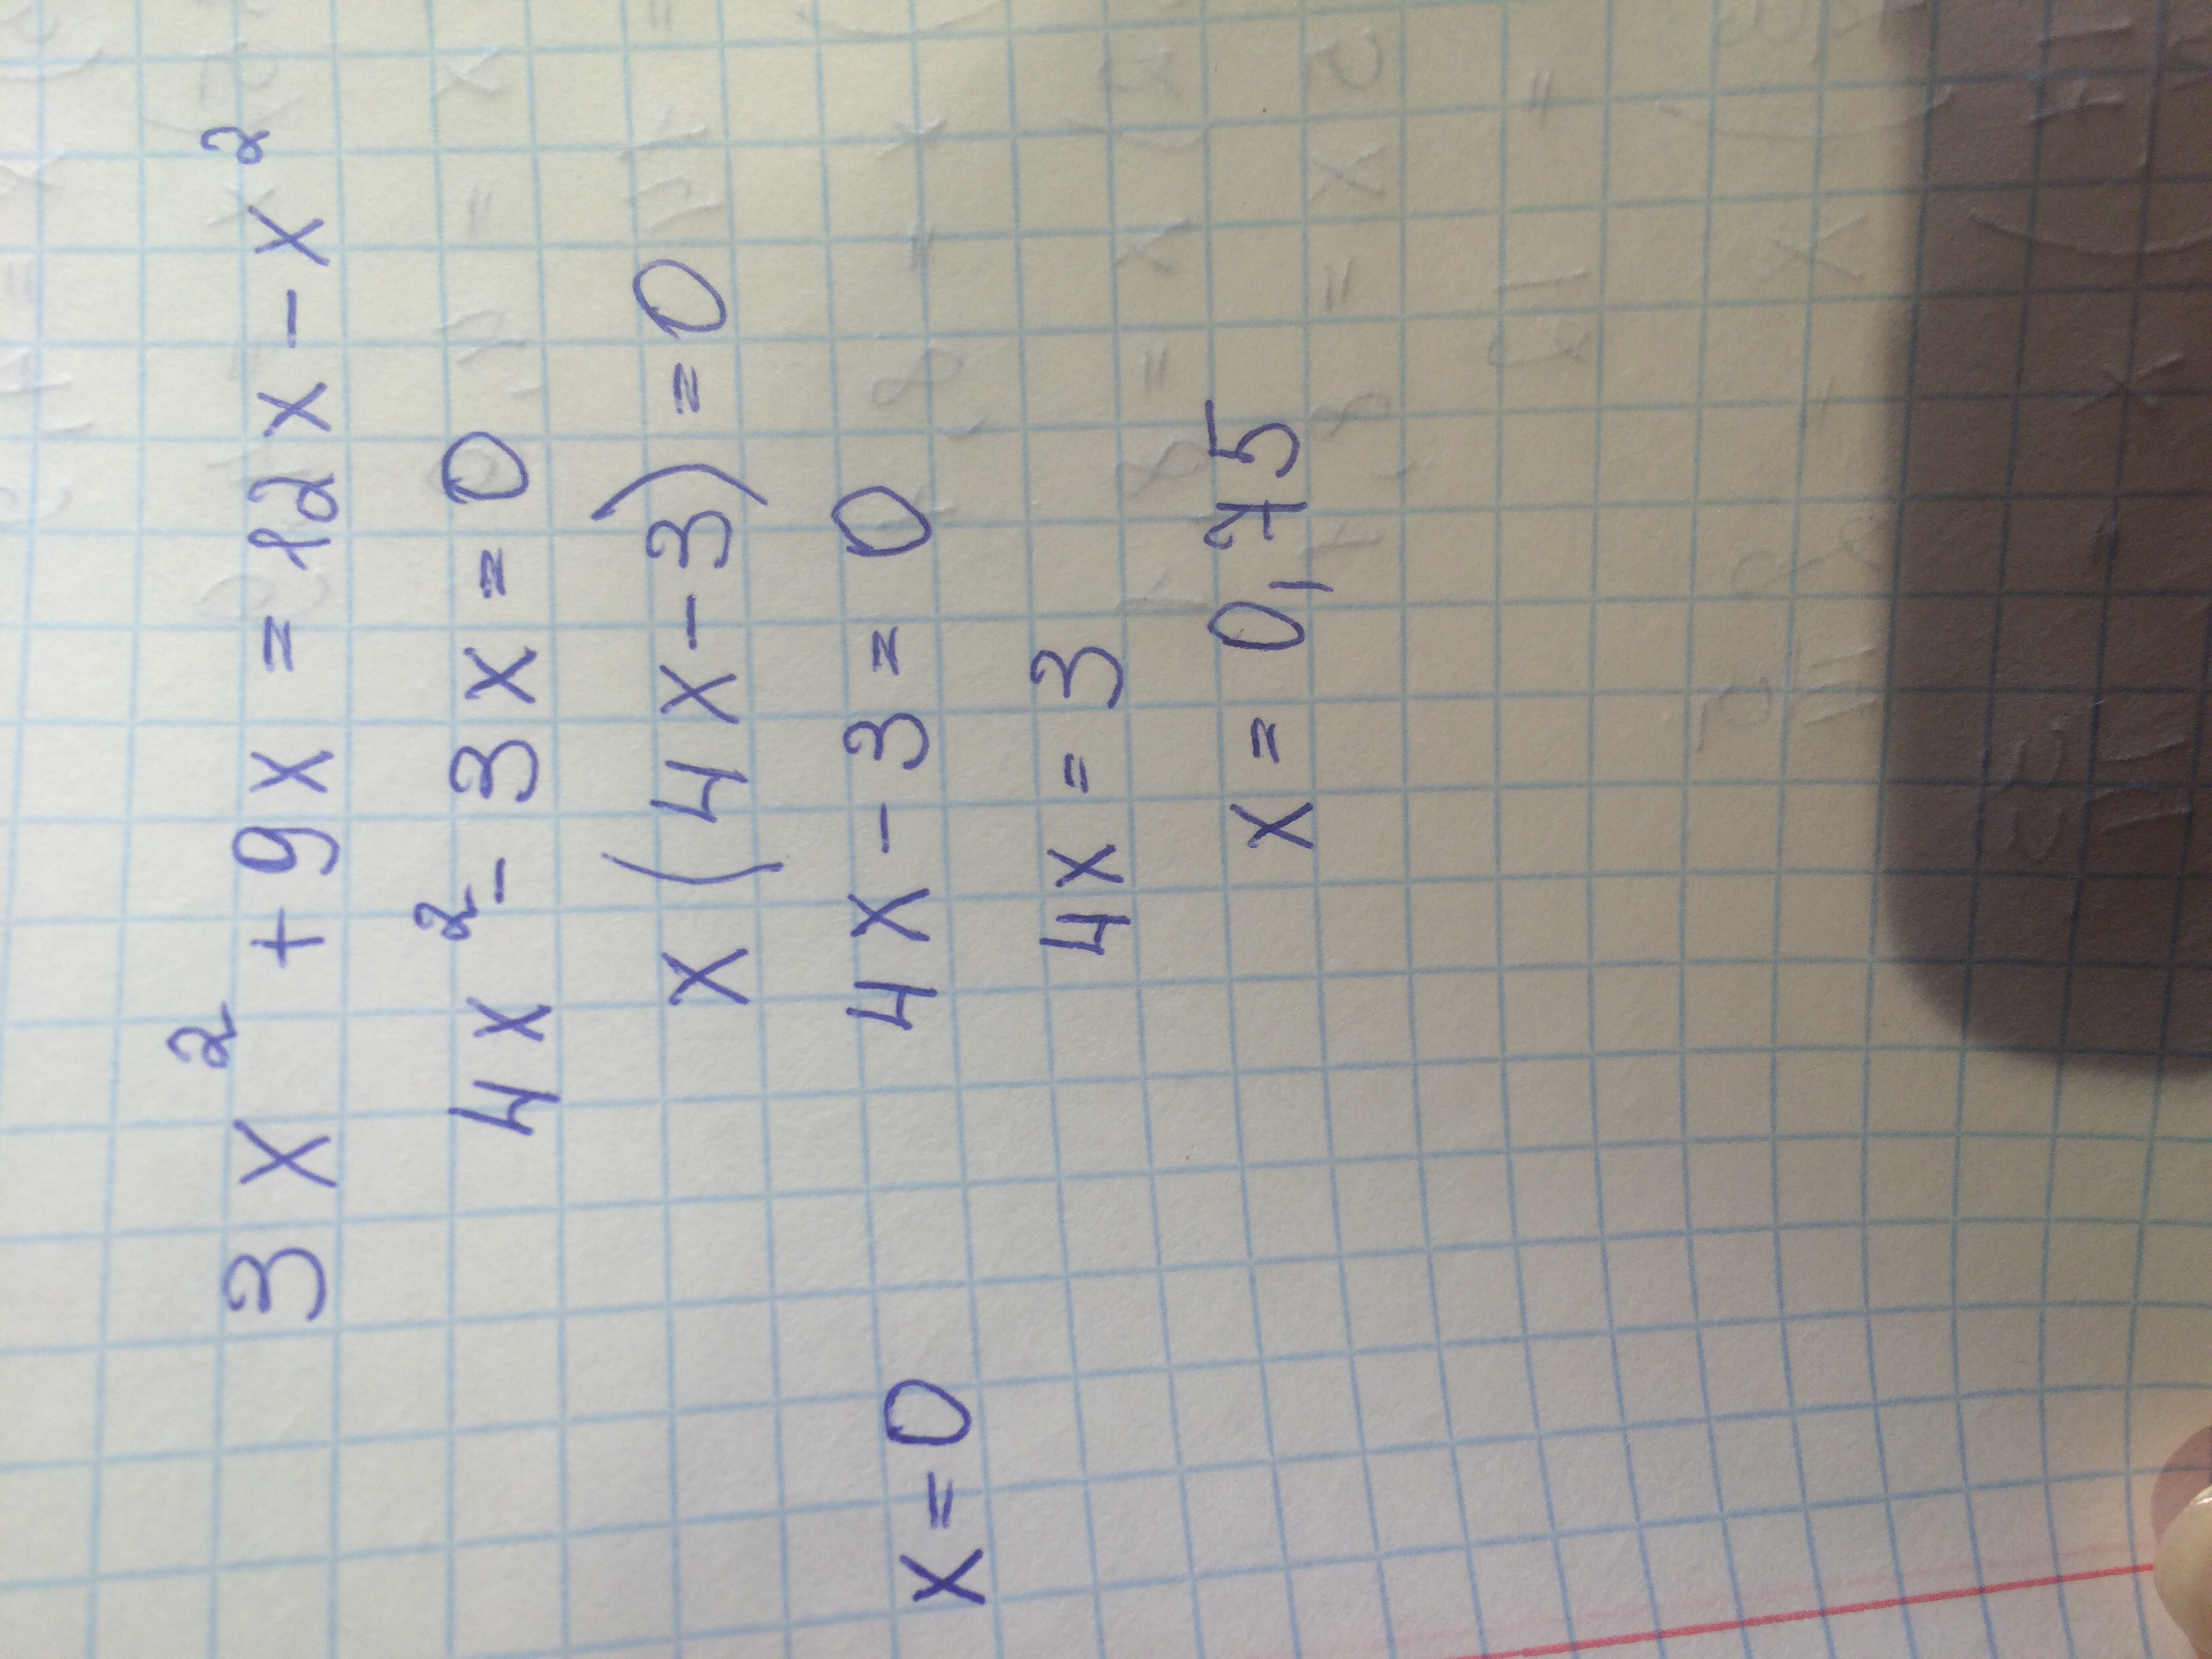 3x² + 9x = 12x - x²
4x² - 3x = 0
x(4x-3) = 0
x = 0 4x - 3 = 0
4x = 3
x = 0,75